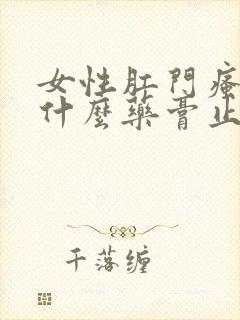 女性肛門瘙
什麼藥膏止
千落缠